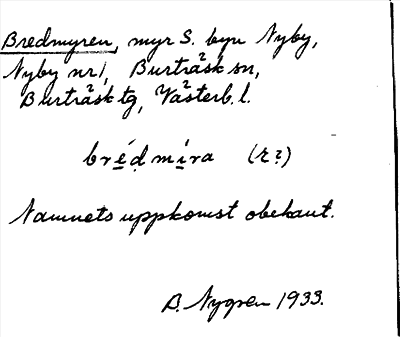 Bredmyren, myr S. byn Nyby,
Nyby nr 1, Burträsk sn,
Burträsk tg, Västerb. l.
brédmira (r?)
Namnets uppkomst obekant.
B. Nygren 1933.